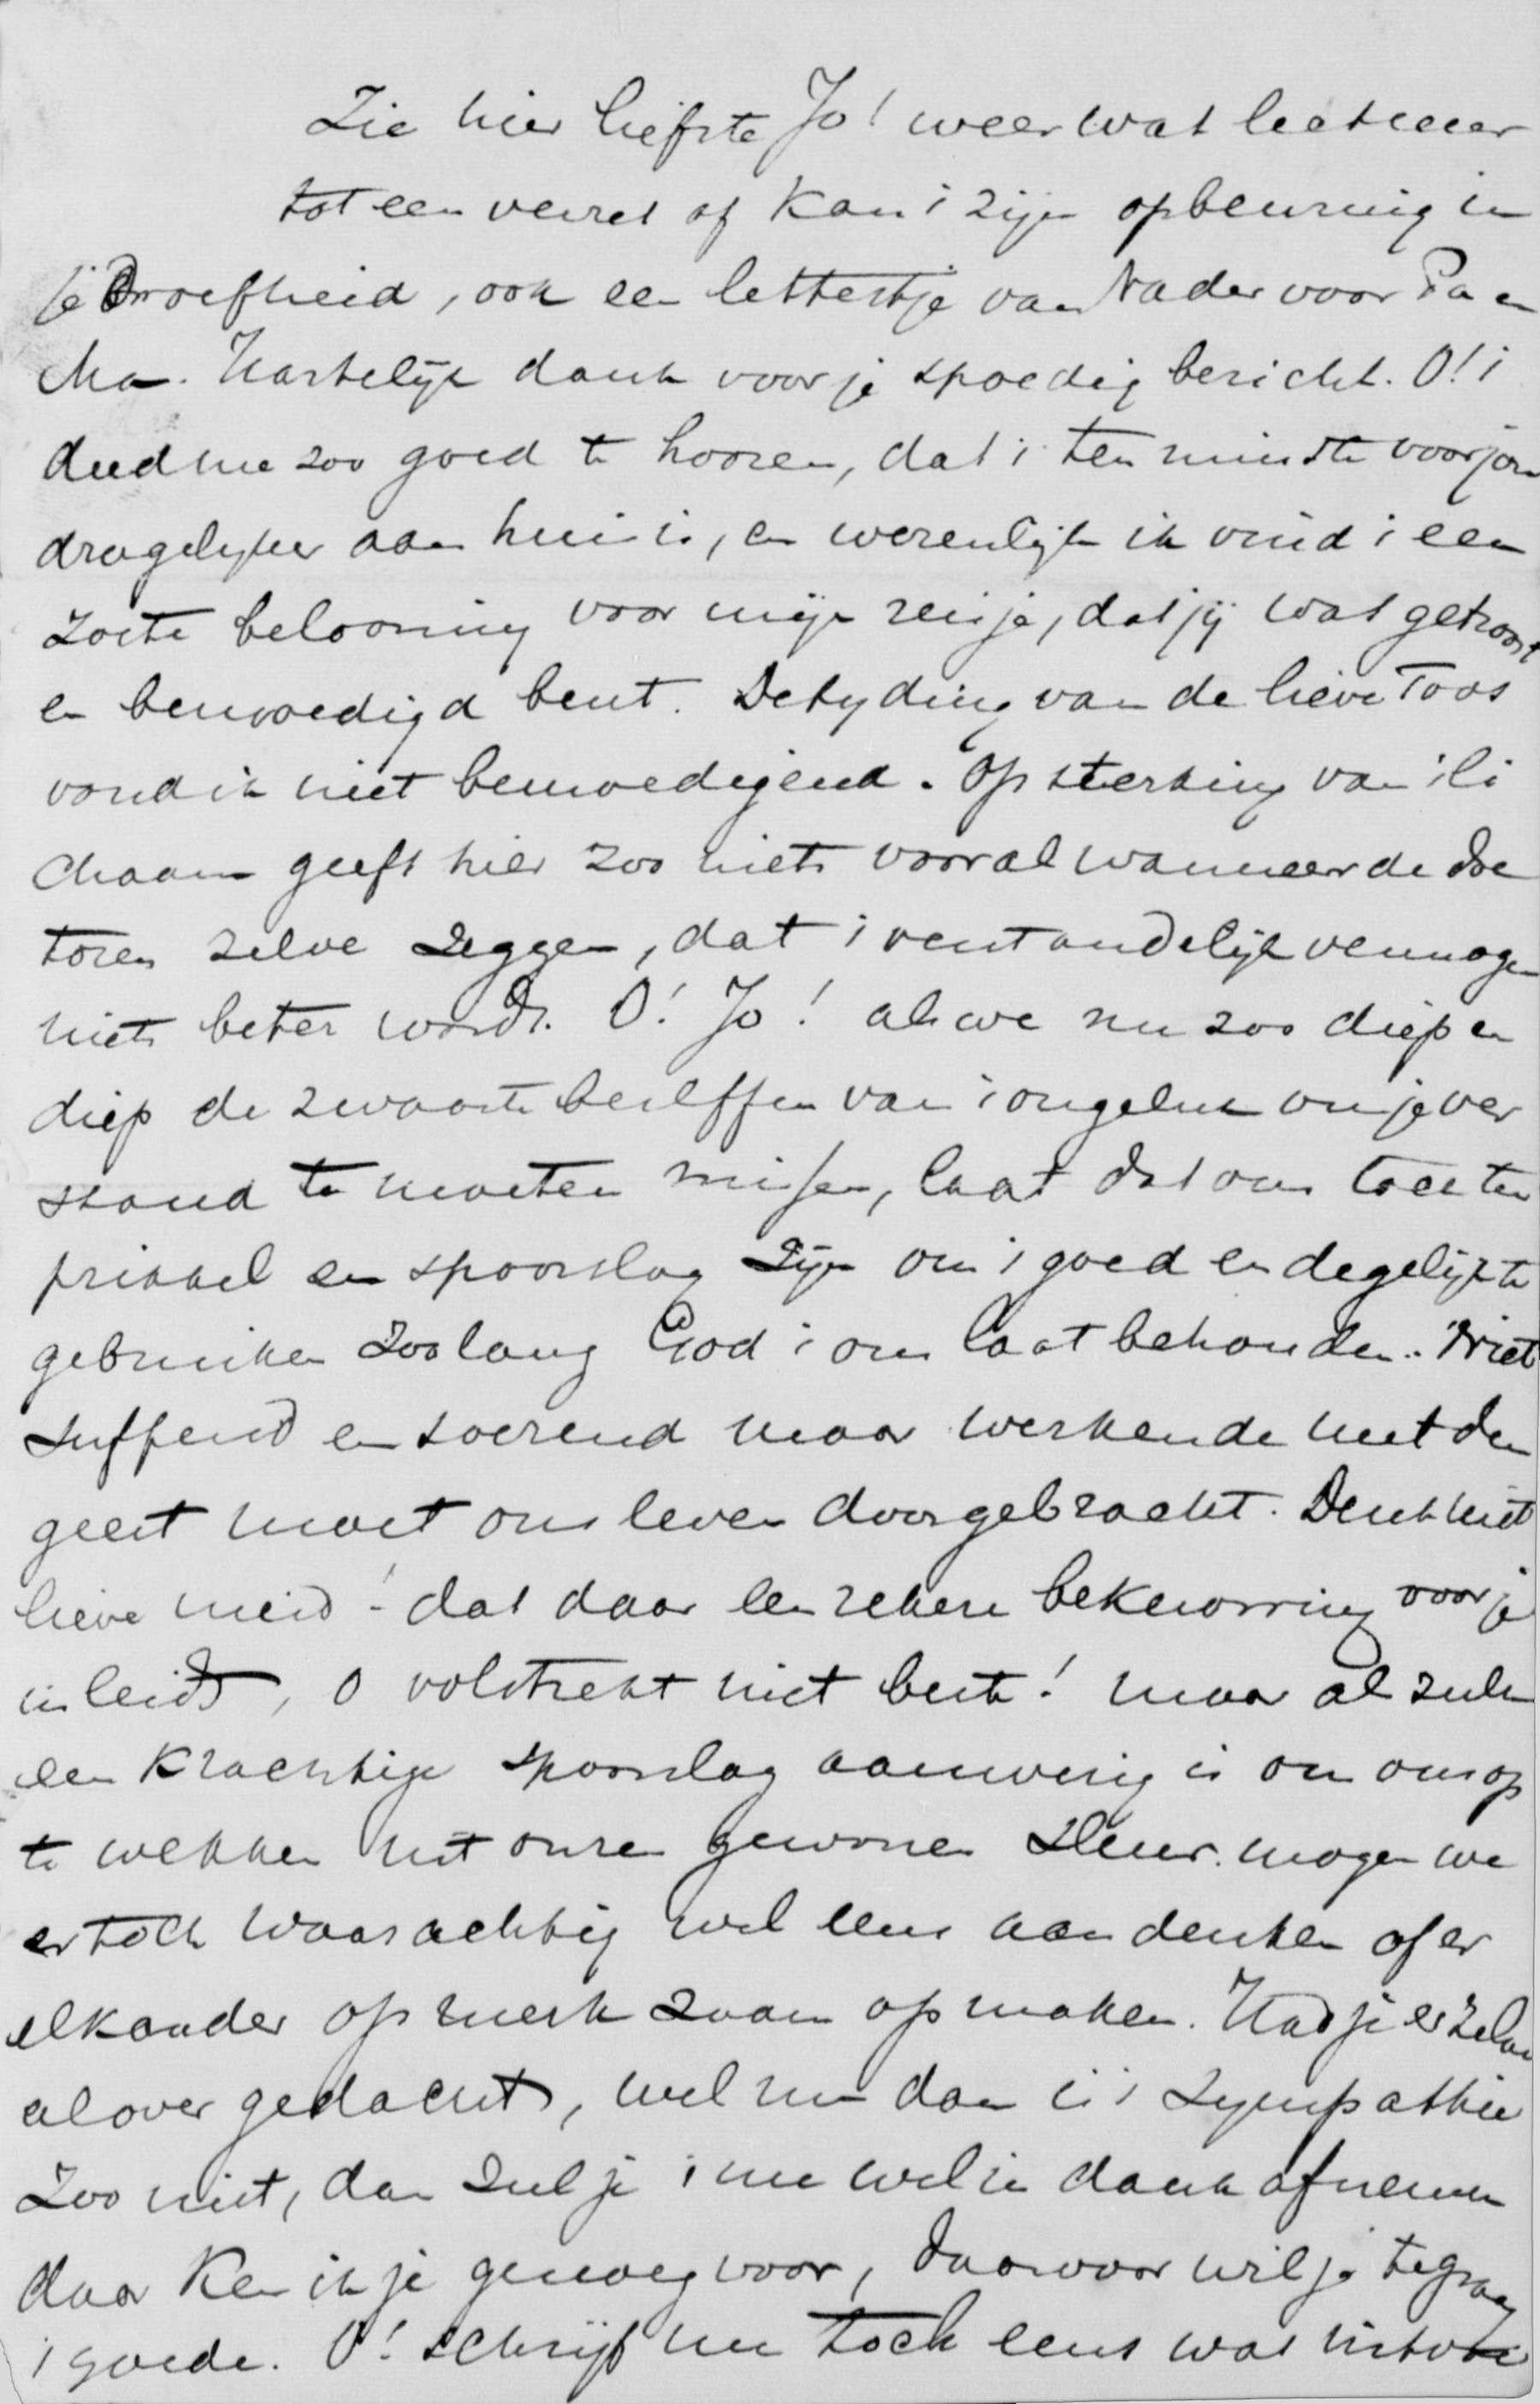 Zie hier liefste Jo! weer wat lectuur
tot een verzet of kan 't zijn opbeuring in
je droefheid, ook een lettertje van Vader voor Pa en
Ma. Hartelijk dank voor je spoedig bericht. O! 't
deed me zoo goed te hooren, dat 't ten minste voor jou
dragelijker aan huis is, en wezenlijk ik vind 't een
zoete belooning voor mijn reisje, dat jij wat getroost
en bemoedigd bent. De tyding van de lieve Toos
vond ik niet bemoedigend. Op sterking van 't li
chaam geeft hier zoo niets vooral wanneer de doc
toren zelve zeggen, dat 't verstandelijk vermogen
niets beter wordt. O! Jo! als we nu zoo diep en
diep de zwaarte beseffen van 't ongeluk om je ver
stand te moeten missen, laat dat ons toch ten
prikkel en spoorslag zijn om 't goed en degelijk te
gebruiken zoolang God 't ons laat behouden. Niet
suffend en soezend maar werkende met den
geest moet ons leven doorgebracht. Denk niet
lieve meid! dat daar een zekere beknorring voor je
in leidt, o volstrekt niet beste! maar als zulk
een krachtige spoorslag aanwezig is om ons op
te wekken uit onzen gewonen sleur. mogen we
er toch waarachtig wel eens aan denken of er
elkander opmerkzaam op maken. Had je er zelve
al over gedacht, wel nu dan is 't sympathie
Zoo niet, dan zul je 't me wel in dank afnemen
daar ken ik je genoeg voor, daarvoor wil je te graag
't goede. O! schrijf me toch eens wat